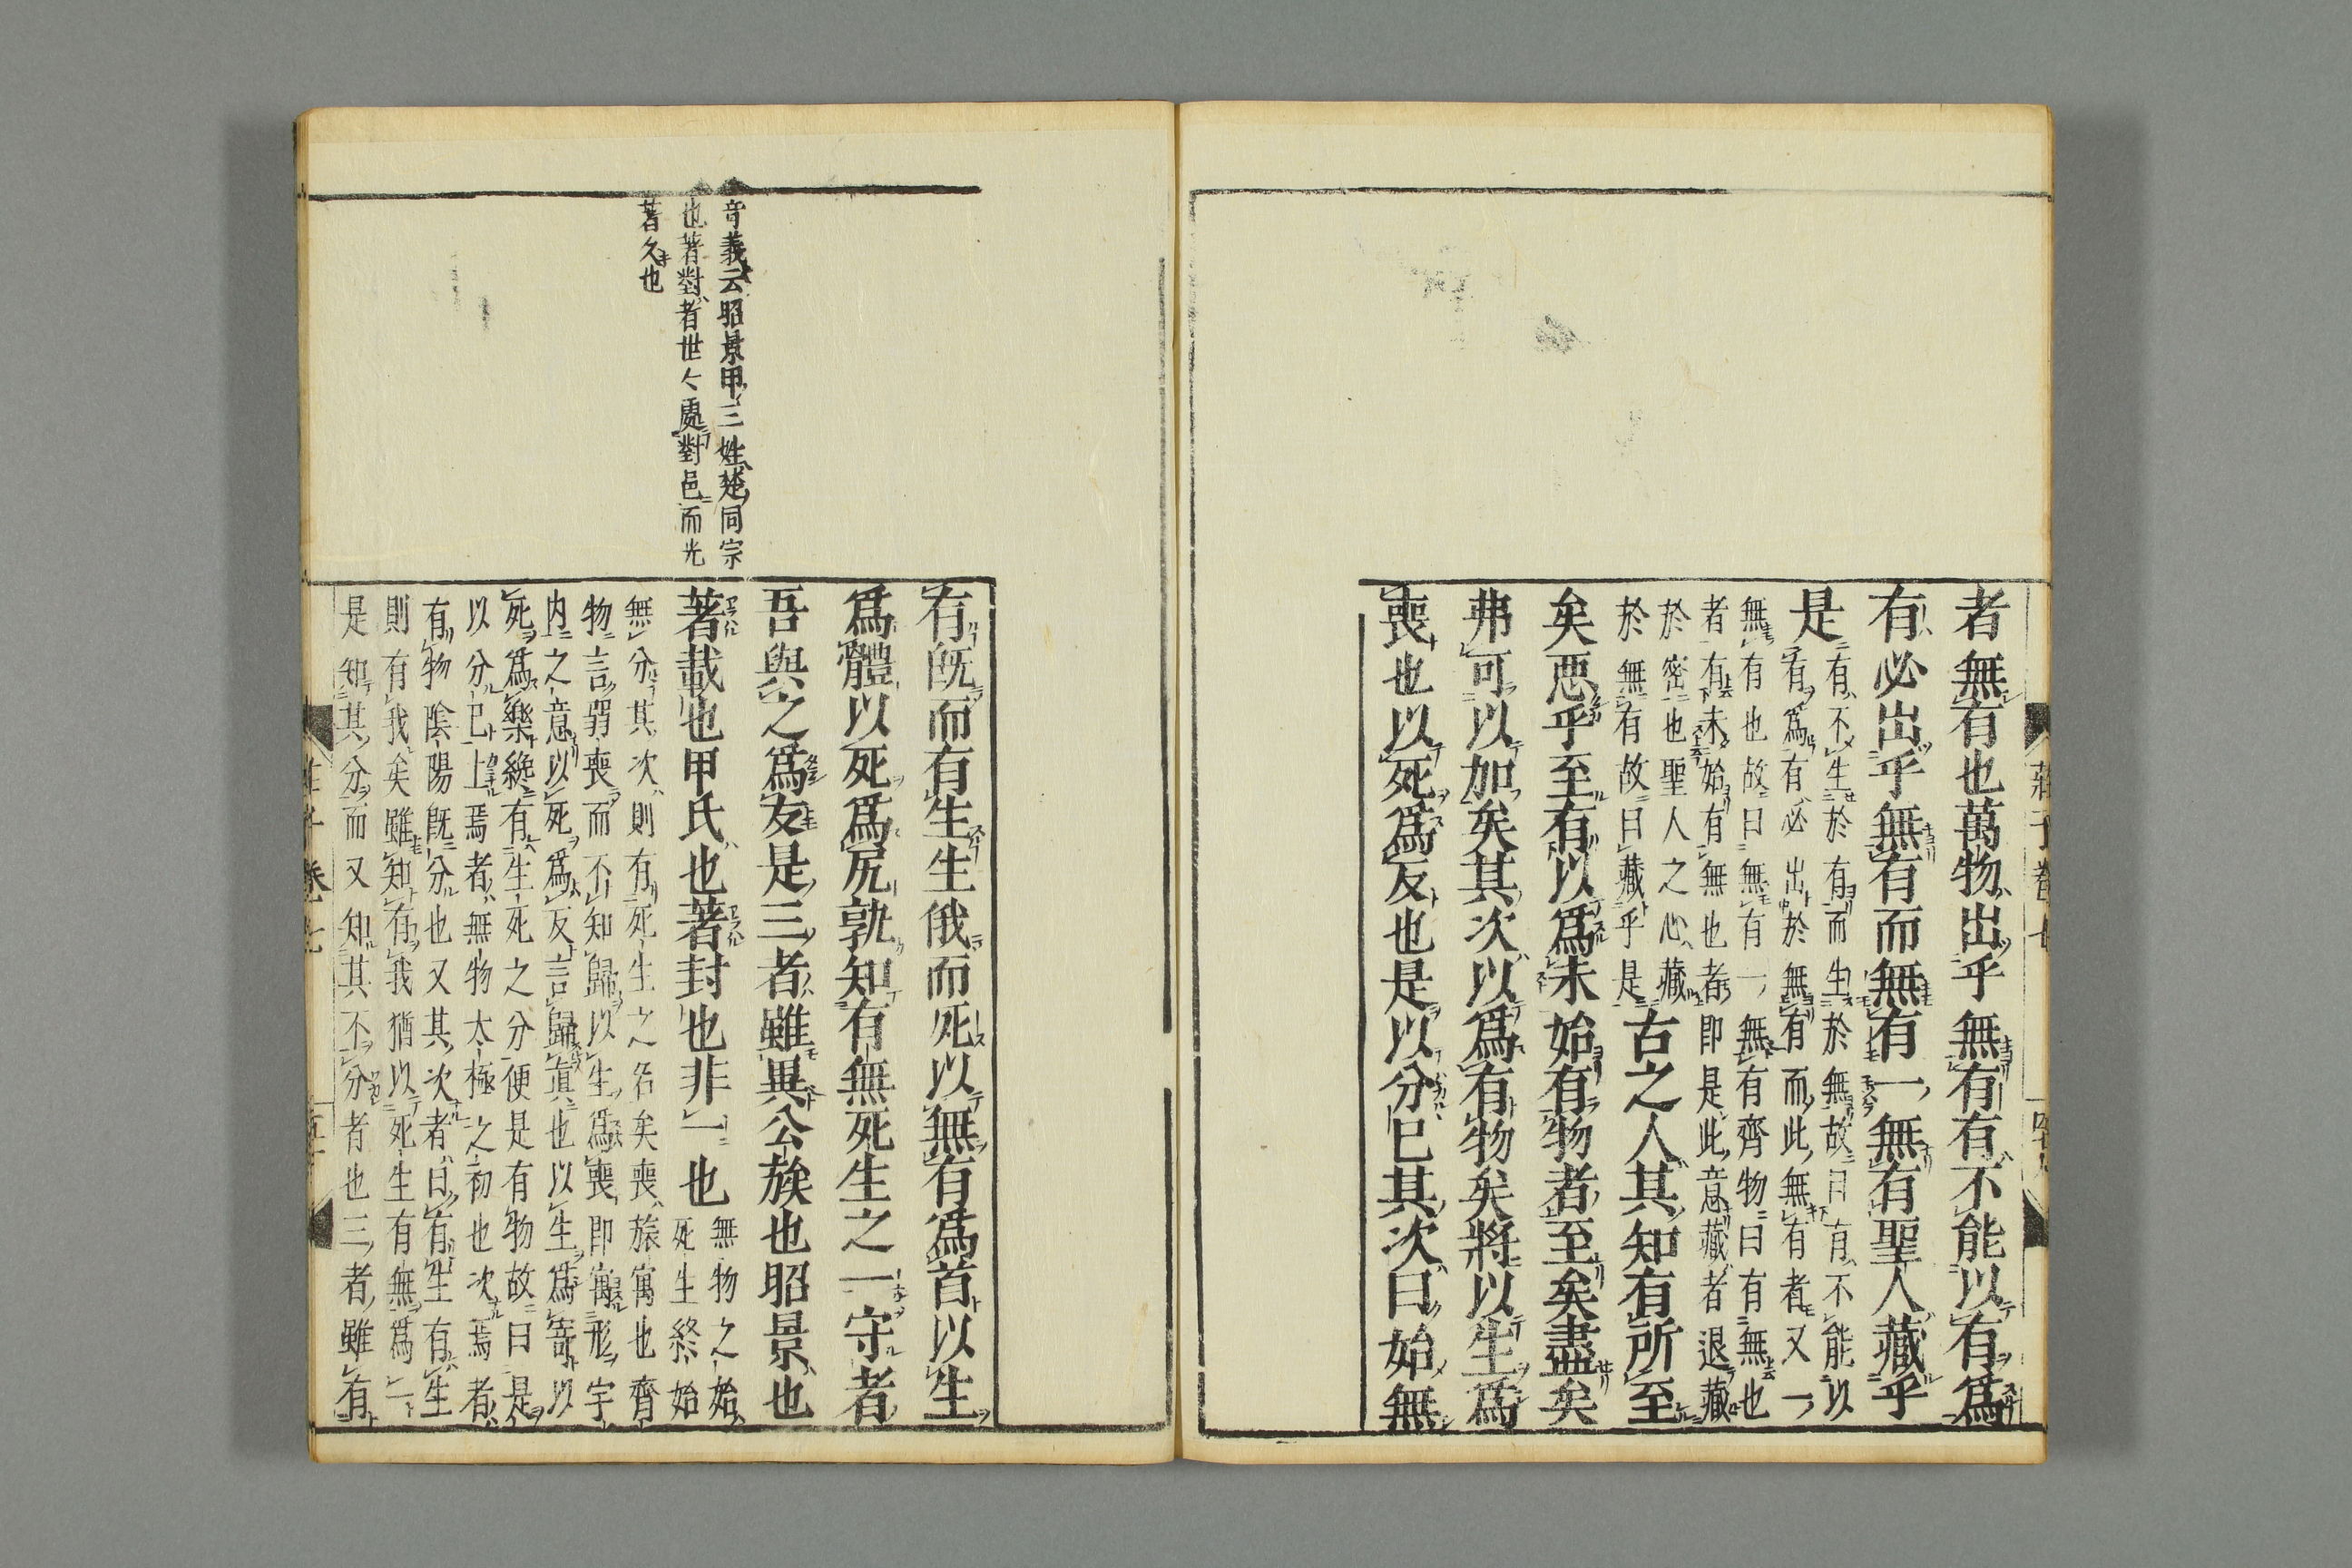 者無有也萬物出乎無有有不能以有爲
有必出乎無有而無有一無有聖人藏乎
是
有不生於有而生於無故曰有不能以
有爲有必出於無有而此無有者又一
無有也故曰無有一無有齊物曰有無也
者有未始有無也者即是此意藏者退藏
於密也聖人之心藏
於無有故曰藏乎是
古之人其知有所至
矣惡乎至有以爲未始有物者至矣盡矣
弗可以加矣其次以爲有物矣將以生爲
喪也以死爲反也是以分已其次曰始無
莊子卷七
音義云昭景甲三姓楚同宗
也著對者世々處對邑而光
著久也
有既而有生生俄而死以無有爲首以生
爲體以死爲尻孰知有無死生之一守者
吾與之爲友是三者雖異公族也昭景也
著載也甲氏也著封也非一也
無物之始
死生終始
無分其次則有死生之名矣喪旅寓也齊
物言弱喪而不知歸以生爲喪即寓形宇
内之意以死爲反言歸眞也以生爲寄以
死爲樂纔有生死之分便是有物故曰是
以分已上焉者無物太極之初也次焉者
有物陰陽既分也又其次者曰有生有生
則有我矣雖知有我猶以死生有無爲一
是知其分而又知其不分者也三者雖有
莊子卷七